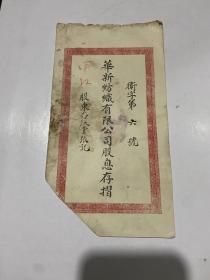 衛字第六號
華新紡織有限公司股息存摺
股東
記